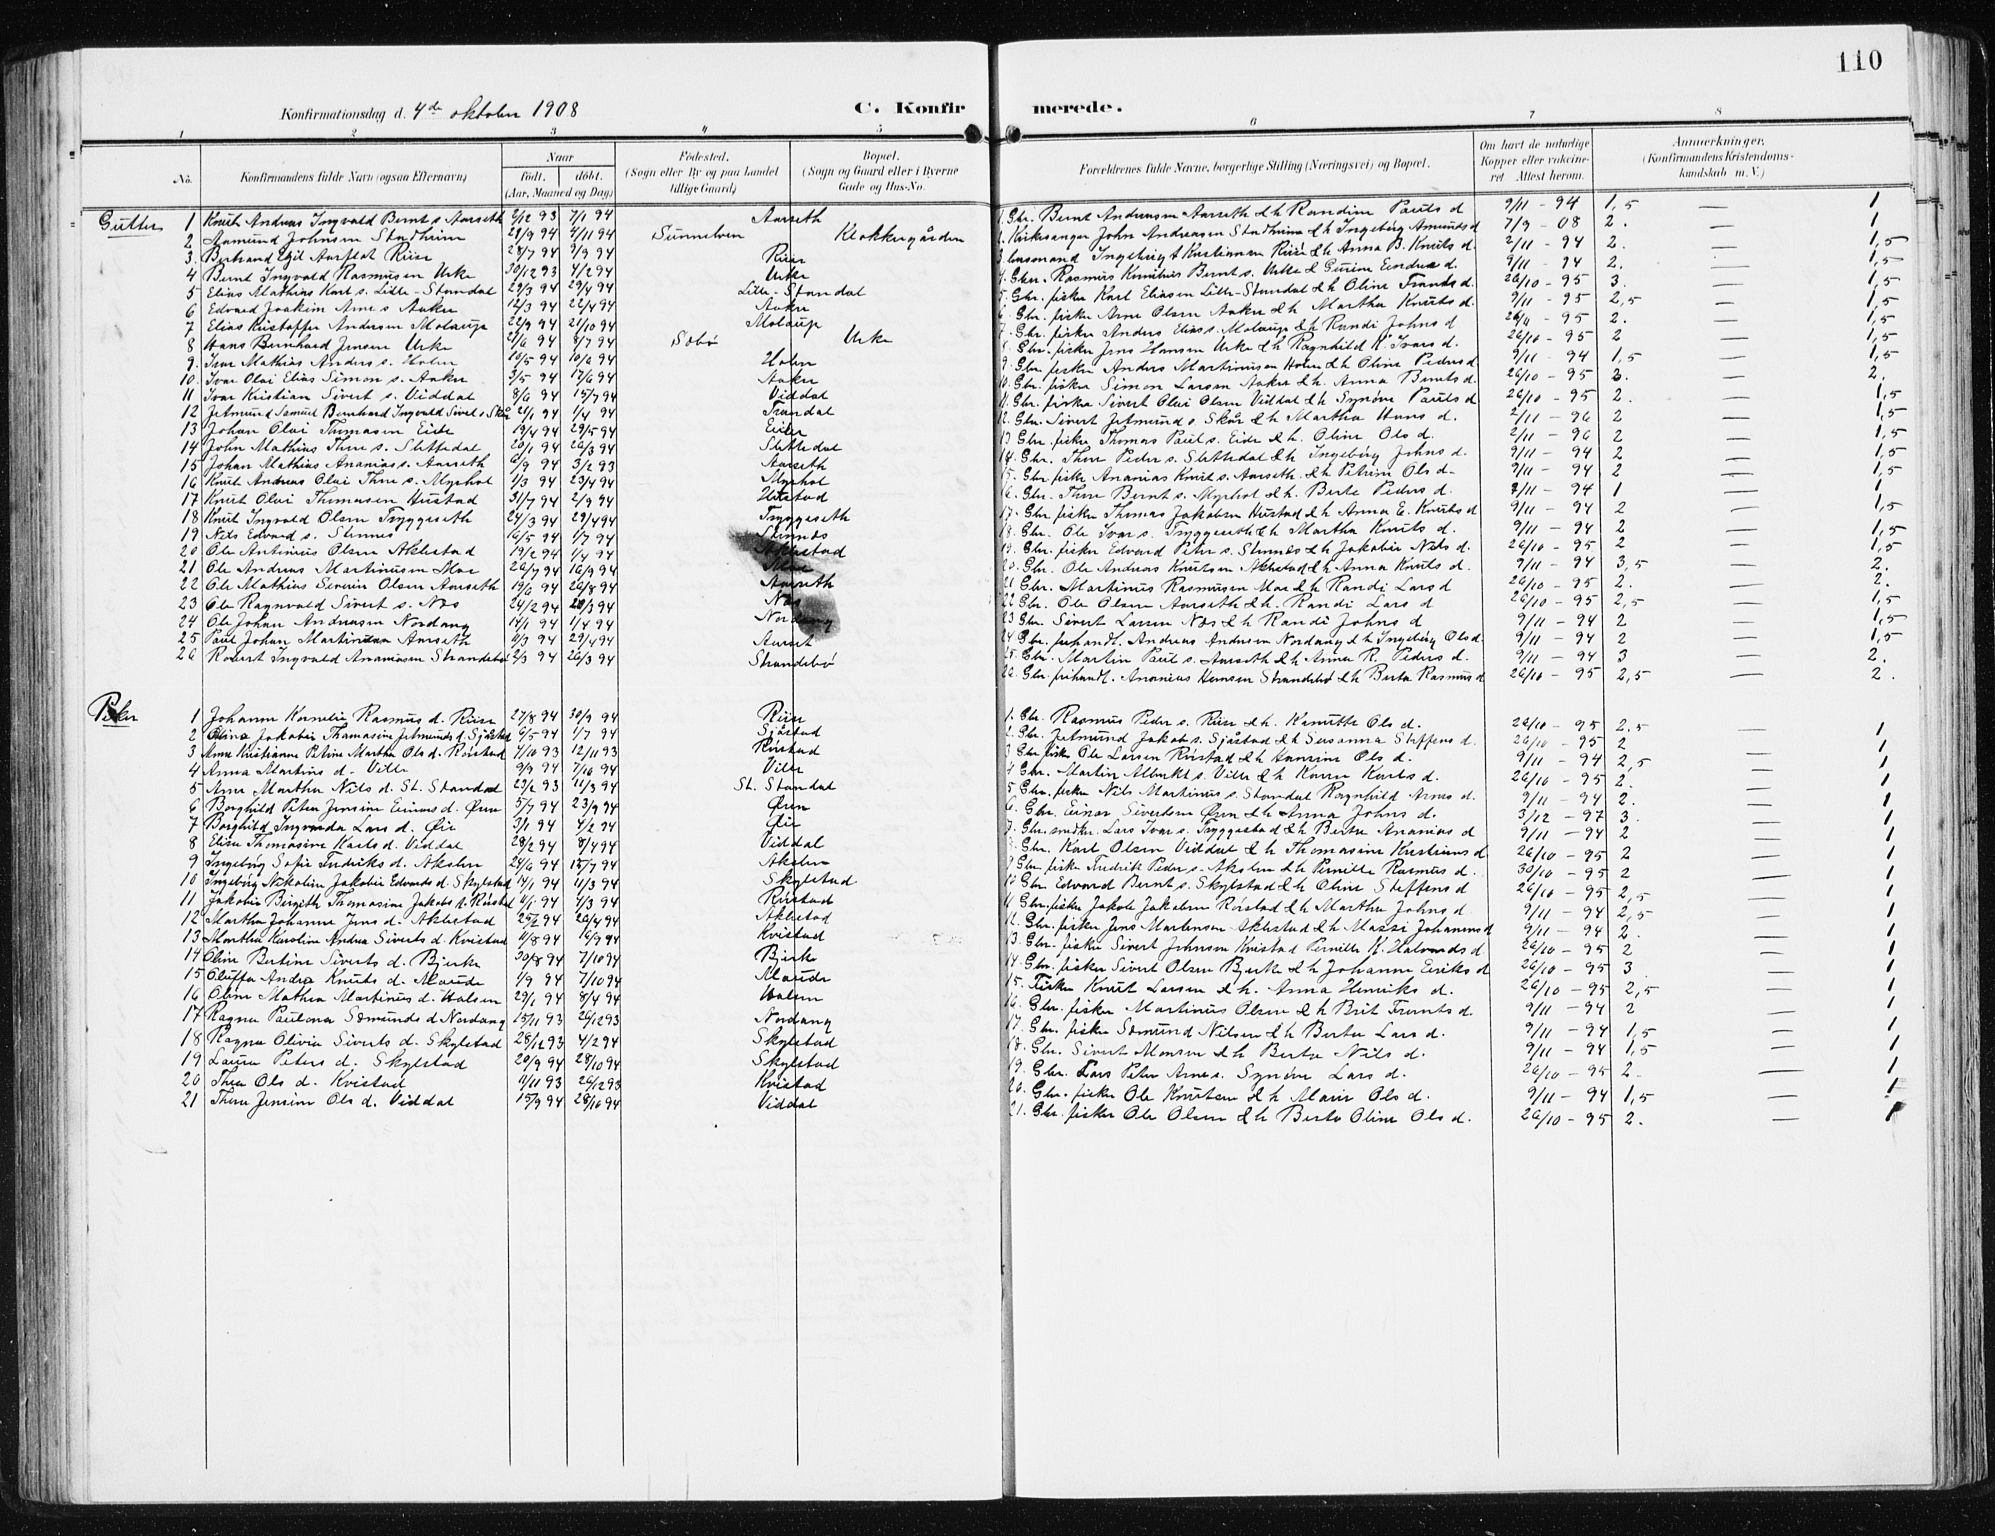 110
Konfirmationsdag d. 4de oktober 1908
C. Konfirmerede.
1 2 3 4 5 6 7 8
No.
Konfirmandens fulde Navn (ogsaa Efternavn)
Naar
født. døbt.
(Aar, Maaned og Dag)
Fødested.
(Sogn eller By og paa Landet tillige Gaard)
Bopæl.
(Sogn og Gaard eller i Byerne Gade og Hus-No.
Forældrenes fulde Navne, borgerlige Stilling (Næringsvei) og Bopæl.
Om havt de naturlige Kopper eller vaccineret. Attest herom.
Anmærkninger.
(Konfirmandens Kristendomskundskab m. V.)
Gutter
1 Knut Andreas Ingvald Bernt s. Aarseth 2/12 93 7/1 94 Aarseth 1. Gbr. Bernt Andreasen Aarseth & h Randine Pauls d 9/11 - 94 1,5 — 1
2 Aamund Johnsen Stadheim 21/9 94 4/11 94 Sunnelven Klokkergården 2. Kirksanger John Andreasen Stadheim & h Ingebørg Amunds d 7/9 - 08 2. — 1
3. Bertrand Egil Aarflot Riise 28/7 94 9/9 94 Riise 3. Ingebrigt Kristiansen Riise & h Anna B. Knuts d. 2/11 - 94 2. — 1,5
4 Bernt Ingvald Rasmusen Urke 30/12 93 4/2 94 Urke 4. Gbr. Rasmus Knutsen Bernt s. Urke & Gurine Endre d. 9/11 - 94 2. — 1,5
5 Elias Mathias Karl s. Lille-Standal 29/3 94 29/4 94 Lille-Standal 5. Gbr. fisker Karl Eliasen Lille-Standal & h Oline Trands d. 26/10 - 95 3. — 1,5
6 Edvard Joakim Arne s Aakre 12/3 94 22/4 94 Aakre 6. Gbr. fisker Arne Olsen Aakre & h Martha Knuts d. 9/11 - 95 2,5 — 1,5
7 Elias Kristoffer Andersen Molaupe 22/9 94 21/10 94 Molaup 7. Gbr. fisker Anders Elias s. Molaupe & h Randi Johns d 26/11 - 95 2. — 1,5
8 Hans Bernhard Jensen Urke 21/6 94 8/7 94 Sæbø Urke 8. Gbr. fisker Jens Hansen Urke & h Ragnhild K. Ivars d. 26/10 - 95 2 — 1,5
9. Ivar Mathias Anders s. Holen 10/5 94 10/6 94 Holen 9. Gbr. fisker Anders Martinusen Holen & h Oline Peders d 9/11 - 94 1,5 — 1,5
10. Ivar Olai Elias Simon s. Aakre 3/5 94 17/6 94 Aakre 10. Gbr. fisker Simon Larsen Aakre & h. Anna Bernts d. 26/10 - 95 3. — 2.
11 Ivar Kristian Sivert s. Viddal 8/6 94 15/7 94 Viddal 11. Gbr. fisker Sivert Olai Olsen Viddal & h Synøve Pauls d 26/10 - 95 2. — 1,5
12 Jetmund Samuel Bernhard Ingvald Sivert s Skår 24/1 94 1/4 94 Trandal 12. Gbr. Sivert Jetmund s. Skår & h Martha Hans d. 2/11 - 96 2 — 1,5
13 Johan Olai Thomasen Eide 19/4 94 29/5 94 Eide 13 Gbr. fisker Thomas Paul s. Eide & h. Oline Ols d. 2/11 - 96 2 — 1,5
14 John Mathias Thore s. Slettedal 20/1 94 26/3 94 Slettedal 14. Gbr. Thore Peder s. Slettedal & h Ingebørg Johns d. 9/11 - 94 2 — 1,5
15 Johan Mathias Ananias s. Aarseth 6/9 94 3/2 93 Aarseth 15. Gbr. fisker Ananias Knut s. Aarseth & h Petrine Ols d- 9/11 - 94 2 — 1,5
16 Knut Andreas Olai Thore s. Myrhol 1/3 94 23/4 94 Myrhol 16. Gbr. Thore Bernt s. Myrhol & h. Berte Peders d. 8/11 - 94 1 — 1
17 Knut Olai Thomasen Hustad 31/7 94 2/9 94 Hustad 17. Gbr. fisker Thomas Jakobsen Hustad & h Anna E. Knuts d 9/11 - 94 2 — 1,5
18 Knut Ingvald Olsen Tryggeseth 24/3 94 29/4 94 Tryggeseth 18. Gbr. Ole Ivar s. Tryggeseth & h Martha Knuts d. 9/11 - 94 2 — 1,5
19 Nils Edvard s. Stennes 16/5 94 1/7 94 Stennes 19. Gbr. fisker Edvard Peter s. Stennes & h Jakobie Nils d. 26/10 - 95 2 — 1,5
20 Ole Antinius Olsen Aklestad 19/2 94 1/4 94 Aklestad 20. Gbr. Ole Andreas Knutsen Aklestad & h Anna Knuts d. 9/11 - 94 3,5 — 2.
21 Ole Andreas Martinusen Moe 26/7 94 16/9 94 Moe 21 Gbr. Martinus Rasmusen Moe & h Randi Lars d 26/10 - 95 2. — 2.
22 Ole Mathias Severin Olsen Aarseth 19/6 94 26/8 94 Aarseth 22 Gbr. Ole Olsen Aarseth & h. Randi Lars d 26/10 - 95 2,5 — 1,5
23 Ole Ragnvald Sivert s. Næs 24/2 94 28/3 94 Næs 23 Gbr. Sivert Larsen Næs & h Randi Johns d 9/11 - 94 2 — 1,5
24 Ole Johan Andreasen Nordang 14/1 94 1/4 94 Nordang 24 Gbr. Andreas Andersen Nordang & h Ingebørg Ols d. 9/11 - 94 2 — 1,5
25 Paul Johan Martinsen Aarseth 11/3 94 29/4 94 Aarset 25. Gbr. Martin Paul s. Aarseth & h Anna R. Peders d. 9/11 - 94 3 — 2.
26 Robert Ingvald Ananiasen Strandebø 2/3 94 26/3 94 Strandebø 26. Gbr. Ananias Hansen Strandebø & h Berte Rasmus d 26/10 - 95 2,5 — 2.
Piker
1 Johanne Kornelie Rasmus d. Riise 27/8 94 30/9 94 Riise 1. Gbr. Rasmus Peder s. Riise & h. Kanutte Ols d. 26/10 - 95 2,5 — 1
2 Olina Jakobie Thomasine Jetmunds d. Sjåstad 6/5 94 1/7 94 Sjåstad 2. Gbr. Jetmund Jakob s. Sjåstad & h Susanna Steffens d. 26/10 - 95 2 — 1
3 Anne Kristianne Petrine Martha Ols d. Rørstad 7/10 93 12/11 93 Rørstad 3 Gbr. fisker Ole Larsen Rørstad & h Hansine Ols d. 9/11 - 94 2,5 — 1
4 Anna Martins d. Ville 9/9 94 7/10 94 Ville 4 Gbr. Martin Albrikt s. Ville & h Karen Karls d. 26/10 - 95 2. — 1
5 Ane Martha Nils d. St. Standal 23/2 93 11/3 94 St. Standal 5 Gbr. fisker Nils Martinus s. Standal Ragnhild Arnes d. 9/11 - 94 2. — 1
6 Borghild Petra Jensine Einars d. Øren 5/7 94 23/9 94 Øren 6. Gbr. Einar Sivertsen Øren & h Anna Johns d. 3/12 - 97 3. — 1
7 Borghild Ingvarda Lars d. Øie 3/1 94 4/2 94 Øie 7. Gbr. snedker Lars Ivar s. Tryggestad & h Berte Ananias d 9/11 - 94 2 — 1
8 Elise Thomasine Karls d. Viddal 28/2 94 8/4 94 Viddal 8. Gbr. Karl Olsen Viddal & h Thomasine Kristians d 26/10 - 95 2 — 1
9 Ingebørg Sofie Fredriks d. Akslen 24/6 94 15/7 94 Akslen 9 Gbr. fisker Fredrik Peder s. Akslen & h Pernille Rasmus d. 30/10 - 95 2 — 1
10 Ingebørg Nikoline Jakobie Edvards d. Skylstad 14/1 94 11/3 94 Skylstad 10 Gbr. Edvard Bernt s. Skylstad & h Oline Steffens d 26/10 - 95 2,5 — 1
11 Jakobie Birgith Thomasine Jakobs d. Rørstad 6/1 94 4/3 94 Rørstad 11 Gbr. fisker Jakob Jakobsen Rørstad & h Martha Johns d 9/11 - 94 2,5 — 1
12 Martha Johanne Jens d. Aklestad 25/2 94 26/4 94 Aklestad 12. Gbr. fisker Jens Martensen Aklestad & h Massi Johannes d 9/11 - 94 2. — 1
13 Martha Karoline Andrea Siverts d. Kvistad 11/8 94 16/9 94 Kvistad 13. Gbr. fisker Sivert Johnsen Kvistad Pernille K. Halvards d 26/10 - 95 2 — 1
14 Oline Bertine Siverts d. Bjerke 30/8 94 7/10 94 Bjerke 14. Gbr. fisker Sivert Olsen Bjerke & h Johanne Eriks d 26/10 - 95 3 — 1
15 Oluffa Andra Knuts d. Maude 1/9 94 7/10 94 Maude 15. Fisker Knut Larsen & h. Anna Henriks d. 26/10 - 95 2,5 — 1
16 Oline Mathea Martinus d. Walsen 29/1 94 8/4 94 Walsen 16. Gbr. fisker Martinus Olsen & h Brit Trunts d. 9/11 - 94 2 — 1
17 Ragna Paulona Sæmunds d Nordang 15/11 93 26/12 93 Nordang 17. Gbr. fisker Sæmund Nilsen & h Berte Lars d. 9/11 - 94 1,5 — 1
18 Ragna Olivia Siverts d. Skylstad 28/12 93 4/2 94 Skylstad 18. Gbr. Sivert Monsen & h Berte Nils d. 9/11 - 94 1,5 — 1
19 Laura Peters d. Skylstad 20/9 94 28/10 94 Skylstad 19. Gbr. Lars Peter Arne s. Synøve Lars d. 26/10 - 95 2. — 1
20 Thea Ols d. Kvistad 9/11 93 26/12 93 Kvistad 20. Gbr. fisker Ole Knutsen & h Marie Ols d. 9/11 - 94 1,5 — 1
21 Thrine Jensine Ols d. Viddal 15/9 94 28/10 94 Viddal 21. Gbr. fisker Ole Olsen & h Berte Oline Ols d. 26/10 - 95 2. — 1